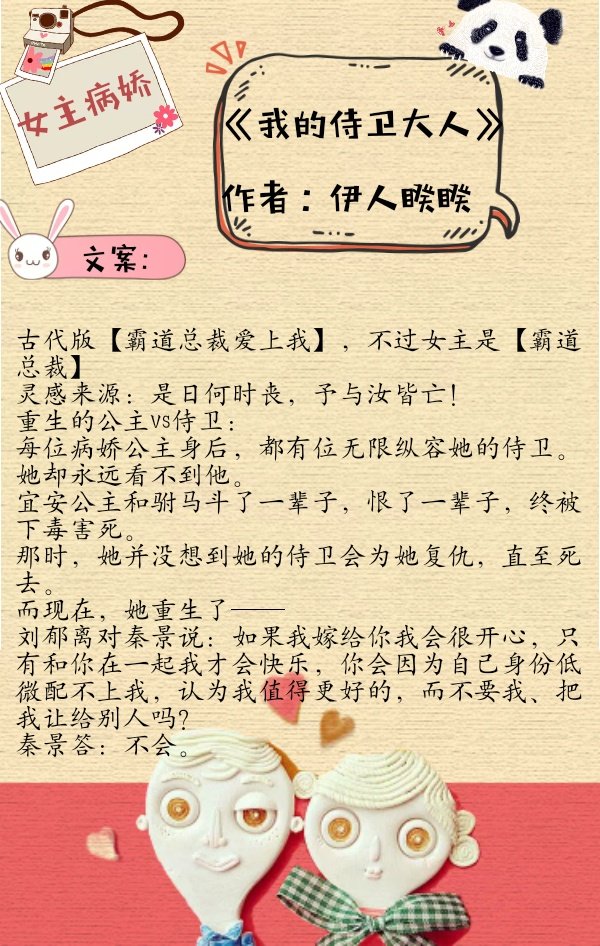 女主病娇
《我的侍卫大人》
作者：伊人睽睽
文案：
古代版【霸道总裁爱上我】，不过女主是【霸道
总裁】
灵感来源：是日何时丧，予与汝皆亡！
重生的公主vs侍卫：
每位病娇公主身后，都有位无限纵容她的侍卫。
她却永远看不到他。
宜安公主和驸马斗了一辈子，恨了一辈子，终被
下毒害死。
那时，她并没想到她的侍卫会为她复仇，直至死
去。
而现在，她重生了——
刘郁离对秦景说：如果我嫁给你我会很开心，只
有和你在一起我才会快乐，你会因为自己身份低
微配不上我，认为我值得更好的，而不要我、把
我让给别人吗？
秦景答：不会。